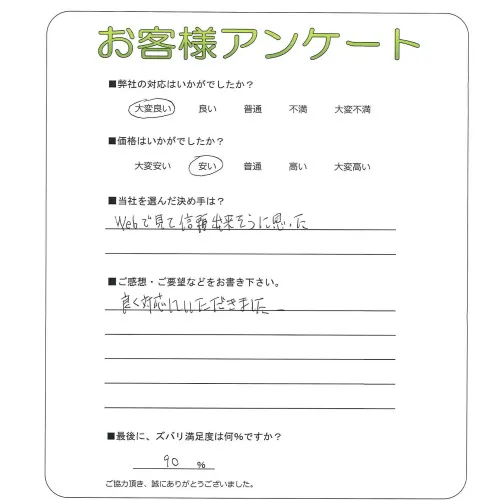 お客様アンケート
■弊社の対応はいかがでしたか？
大変良い 良い 普通 不満 大変不満
■価格はいかがでしたか？
大変安い 安い 普通 高い 大変高い
■当社を選んだ決め手は？
Webで見て信頼出来そうに思った
■ご感想・ご要望などをお書き下さい。
良く対応していただきました
■最後に、ズバリ満足度は何％ですか？
90 ％
ご協力頂き、誠にありがとうございました。